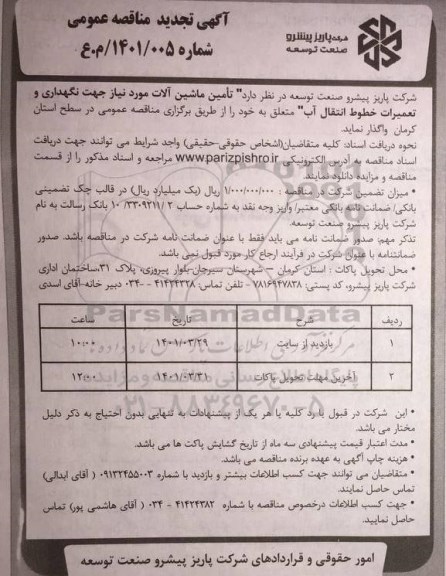 شرکت پاریز پیشرو
صنعت توسعه
آگهی تجدید مناقصه عمومی
شماره ۱۴۰۱/۰۰۵/م.ع
شرکت پاریز پیشرو صنعت توسعه در نظر دارد" تأمین ماشین آلات مورد نیاز جهت نگهداری و
تعمیرات خطوط انتقال آب" متعلق به خود را از طریق برگزاری مناقصه عمومی در سطح استان
کرمان واگذار نماید.
نحوه دریافت اسناد: کلیه متقاضیان(اشخاص حقوقی-حقیقی) واجد شرایط می توانند جهت دریافت
اسناد مناقصه به آدرس الکترونیکی www.parizpishro.ir مراجعه و اسناد مذکور را از قسمت
مناقصه و مزایده دانلود نمایند.
• میزان تضمین شرکت در مناقصه : ۱/۰۰۰/۰۰۰/۰۰۰ ریال (یک میلیارد ریال) در قالب چک تضمینی
بانکی/ ضمانت نامه بانکی معتبر/ واریز وجه نقد به شماره حساب ۲ /۳۳۰۹۲۱۱/ ۱۰ بانک رسالت به نام
شرکت پاریز پیشرو صنعت توسعه.
تذکر مهم: صدور ضمانت نامه می باید فقط با عنوان ضمانت نامه شرکت در مناقصه باشد. صدور
ضمانتنامه با عنوان شرکت در فرآیند ارجاع کار مورد قبول نمی باشد.
• محل تحویل پاکات : استان کرمان – شهرستان سیرجان-بلوار پیروزی، پلاک ۳۱،ساختمان اداری
شرکت پاریز پیشرو، کد پستی: ۷۸۱۶۹۴۷۸۳۸ - تلفن تماس: ۴۱۴۲۴۳۲۸ -۰۳۴ دبیر خانه-آقای اسدی
ردیف شرح تاریخ ساعت
۱ بازدید از سایت ۱۴۰۱/۰۳/۲۹ ۱۰:۰۰
۲ آخرین مهلت تحویل پاکات ۱۴۰۱/۰۳/۳۱ ۱۲:۰۰
ParsNamadData
۰۲۱-۸۸۳۴۹۶۷۰-۵
• این شرکت در قبول یا رد کلیه یا هر یک از پیشنهادات به تنهایی بدون احتیاج به ذکر دلیل
مختار می باشد.
• مدت اعتبار قیمت پیشنهادی سه ماه از تاریخ گشایش پاکت ها می باشد.
• هزینه چاپ آگهی به عهده برنده مناقصه می باشد.
• متقاضیان می توانند جهت کسب اطلاعات بیشتر و بازدید با شماره ۰۹۱۳۲۴۵۵۰۰۳ ( آقای ابدالی)
تماس حاصل نمایند.
• جهت کسب اطلاعات درخصوص مناقصه با شماره ۴۱۴۲۴۳۸۲ – ۰۳۴ ( آقای هاشمی پور) تماس
حاصل نمایید.
امور حقوقی و قراردادهای شرکت پاریز پیشرو صنعت توسعه